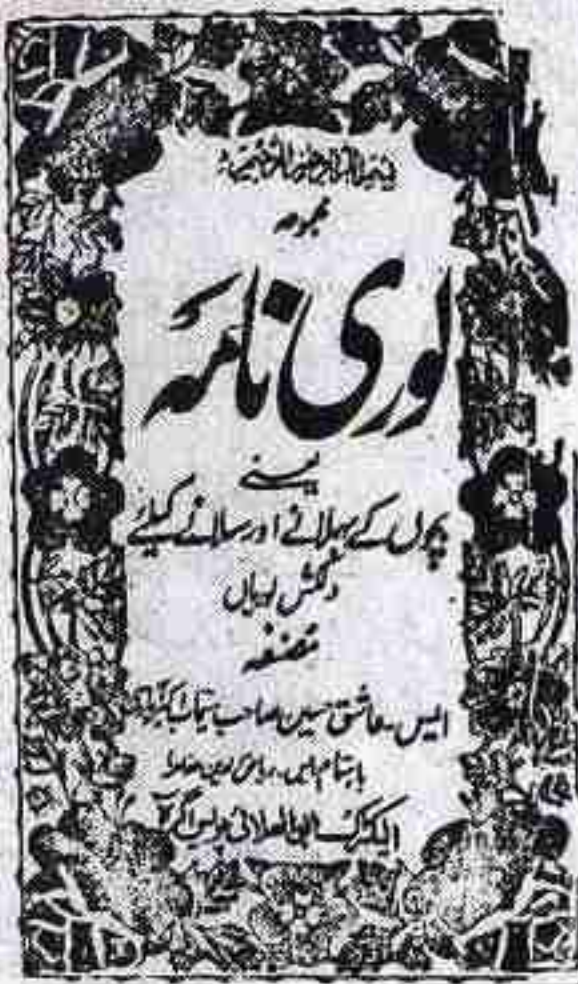 بسم اللہ الرحمن الرحیم
مجموعہ
لوری نامہ
یعنے
بچوں کے بہلانے اور سلانے کیلئے
دلکش لوریاں
مصنفہ
ایس۔ عاشق حسین صاحب سیماب اکبرآبادی
باہتمام ایس۔
الیکٹرک ابوالعلائی پریس آگرہ